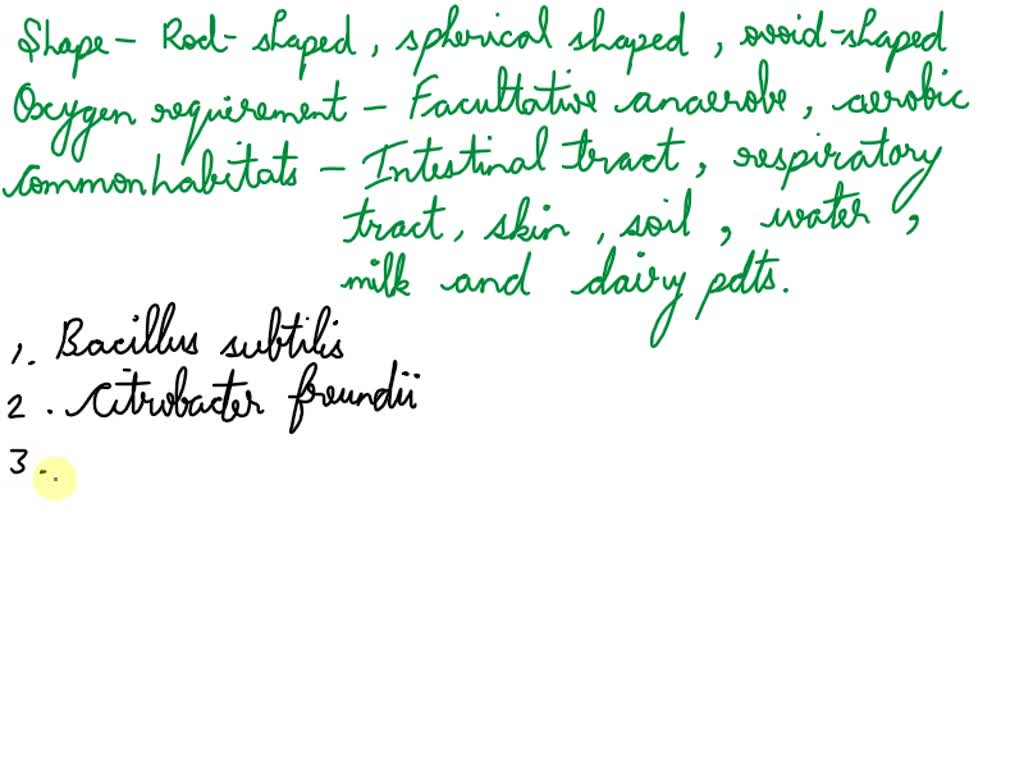 Shape - Rod-shaped, spherical shaped, ovoid-shaped
Oxygen requirement - Facultative anaerobe, aerobic
Common habitats - Intestinal tract, respiratory
tract, skin, soil, water,
milk and dairy pdts.
1. Bacillus subtilis
2. Citrobacter freundii
3.